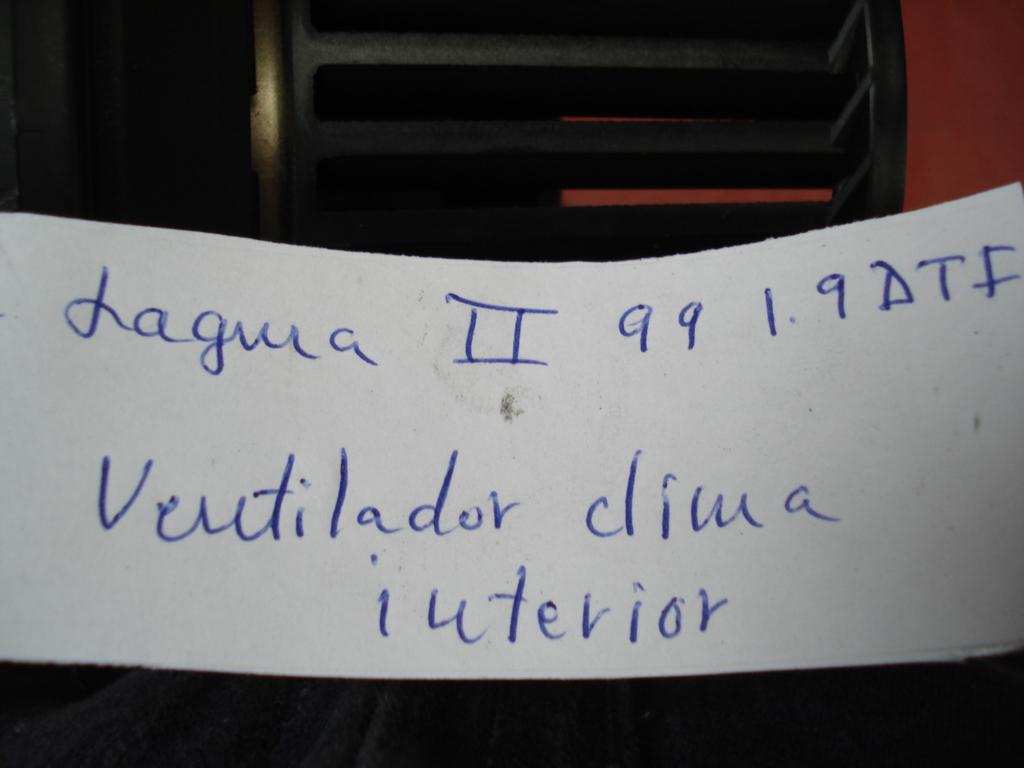 Laguna II 99 1.9 DTI
Ventilador clima
interior